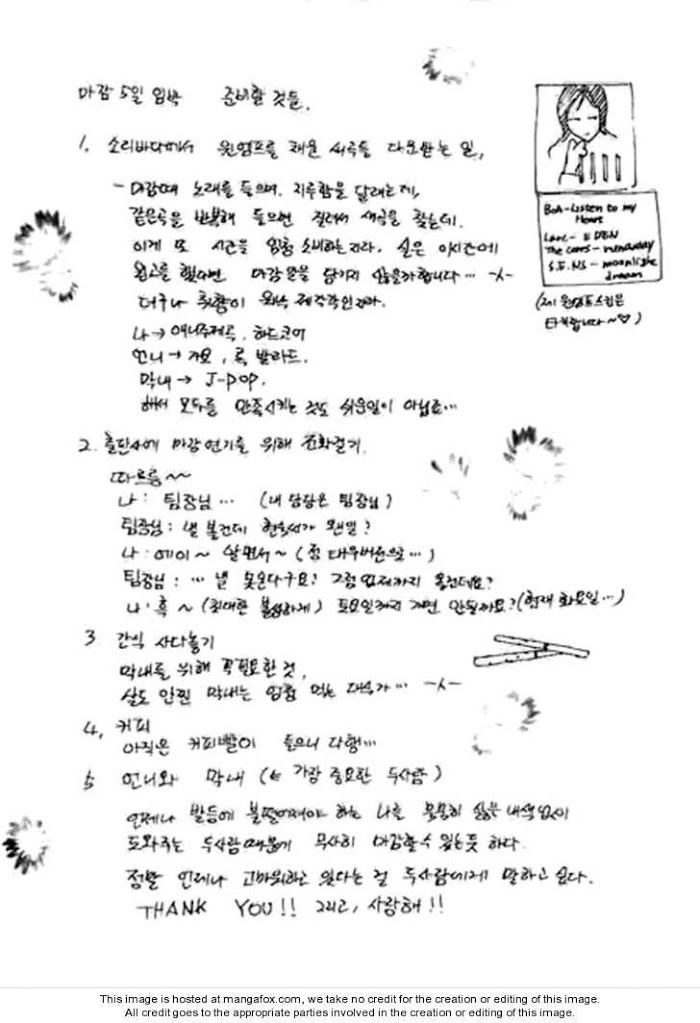 마감 5일 임박 준비할 것들.
1. 소리바다에서 윈엠프를 채울 새곡들 다운받는 일,
- 마감때 노래를 들으며, 지루함을 달래는데,
같은곡을 반복해 들으면 질려서 새곡을 찾는데.
이게 또 시간을 엄청 소비하는지라. 실은 이시간에
원고를 했다면 마감 을 당기지 않을까합니다… -ㅅ-
더구나 취향이 워낙 제각각인지라.
나→ 애니주제곡, 하드코어
언니→ 가요, 록 발라드.
막내→ J-POP.
해서 모두를 만족시키는 것도 쉬운일이 아닙죠…
BoA-Listen to my
Heart
L'arc- EDEN
The cans-
S.E.NS - moonlight
dream
(제 윈엠프스킨은
~♡)
2. 출판사에 마감 연기를 위해 전화걸기.
따르릉~~
나: 팀장님… (내 담당은 팀장님)
팀장님: 낼 볼건데 웬일?
나: 에이~ 살면서~ (점 …)
팀장님: … 낼 못온다구요? 그럼 언제까지 올건데요?
나: 흑~ (최대한 불쌍하게) 토요일까지 가면 안될까요? (현재 화요일…)
3 간식 사다놓기
막내를 위해 꼭필요한 것,
살도 안찐 막내는 엄청 먹는 대식가… -ㅅ-
4, 커피
아직은 커피빨이 들으니 다행…
5 언니와 막내 (← 가장 중요한 두사람)
언제나 발등에 불떨어져야 하는 나를 묵묵히 싫은 내색없이
도와주는 두사람때문에 무사히 마감할수 있는듯 하다.
정말 언제나 고마워하고 있다는 걸 두사람에게 말하고 싶다.
THANK YOU!! 그리고, 사랑해!!
This image is hosted at mangafox.com, we take no credit for the creation or editing of this image.
All credit goes to the appropriate parties involved in the creation or editing of this image.